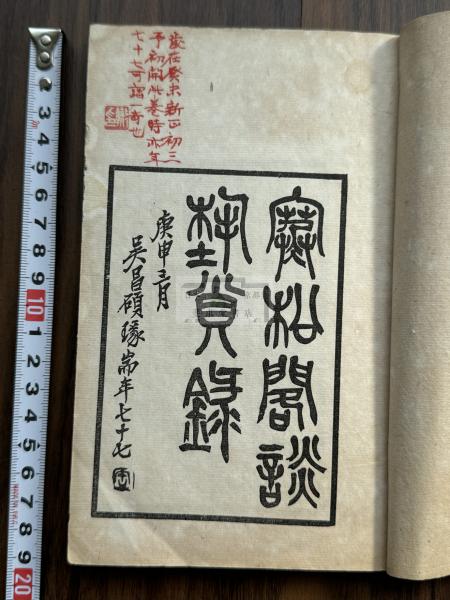 歲在癸未新正初三
予初開此卷時亦年
七十七可謂一奇也
寒松閣談
埶𧴪錄
庚申三月
吳昌碩瑑耑年七十七
2
3
4
5
6
7
8
9
10
1
2
3
4
5
6
7
8
9
20